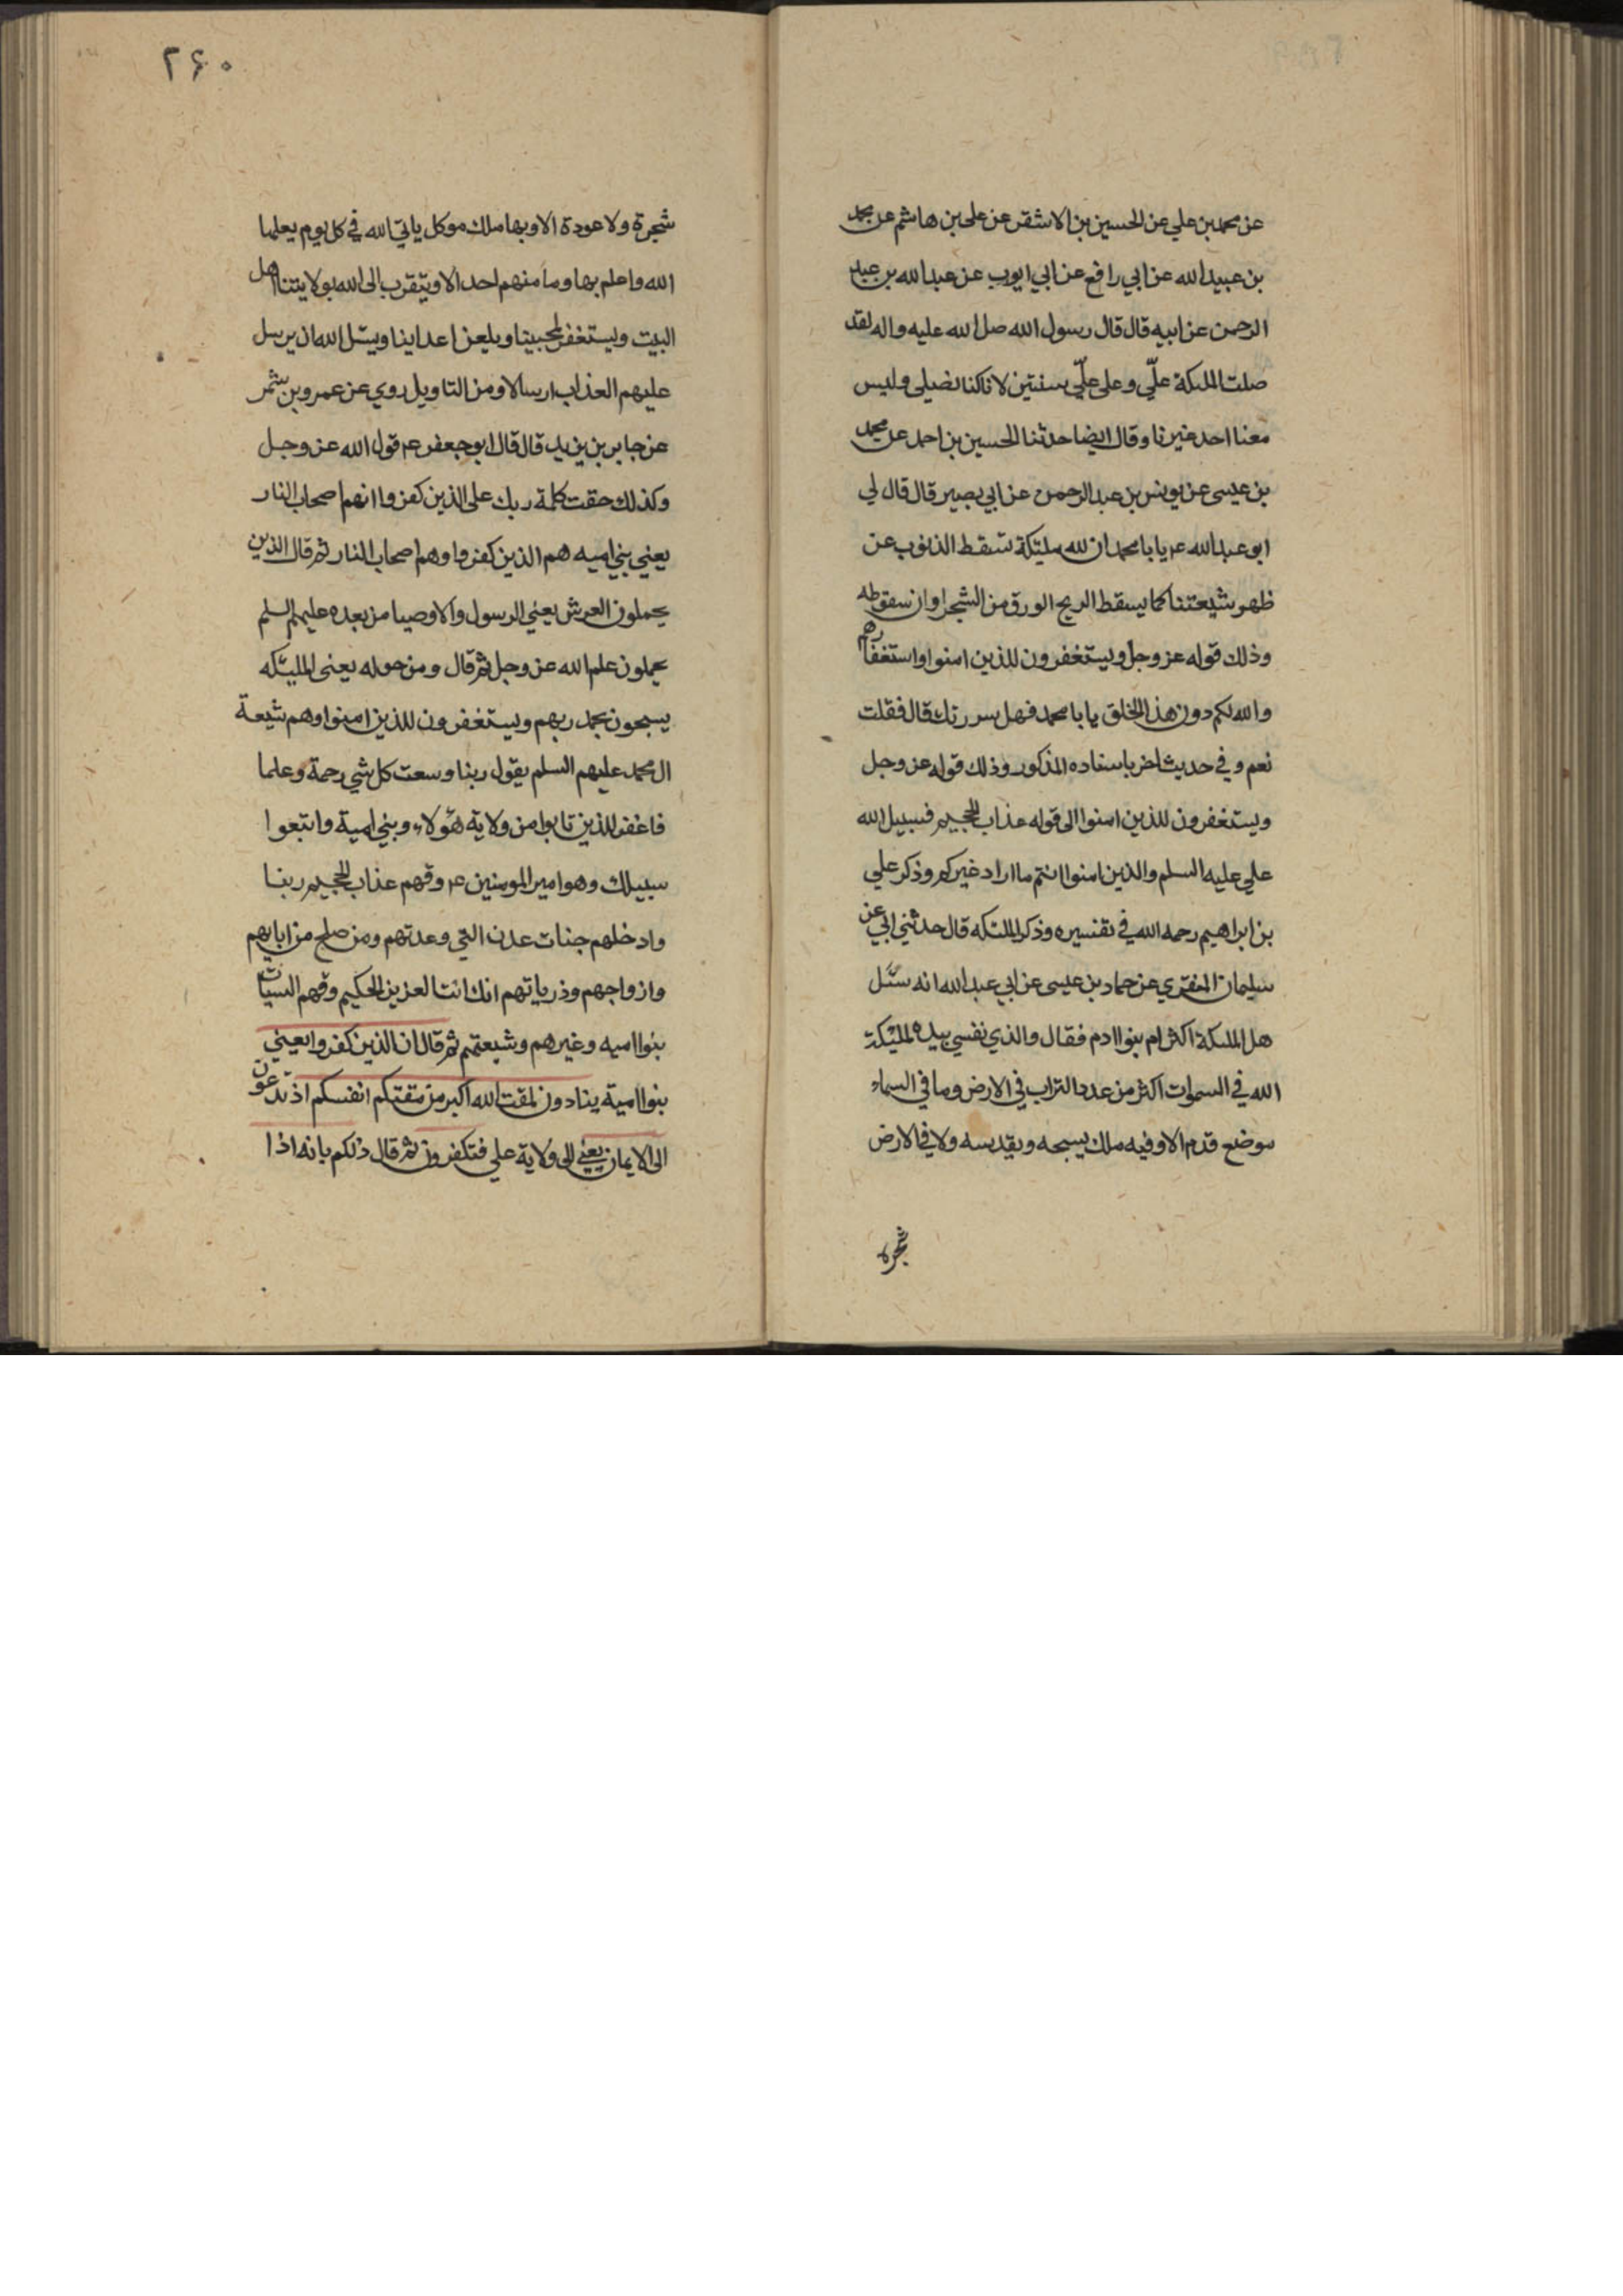 عن محمد بن علي عن الحسين بن الاشقر عن على بن هاشم عن محمد
بن عبيد الله عن ابي رافع عن ابي ايوب عن عبد الله بن عبد
الرحمن عن ابيه قال قال رسول الله صل الله عليه واله لقد
صلت الملئكة علّي وعلى علّي سنتين لانا كنا نصلى وليس
معنا احد غيرنا وقال ايضا حدثنا الحسين بن احمد عن محمد
بن عيسى عن يونس بن عبد الرحمن عن ابي بصير قال قال لي
ابو عبد الله ع يا با محمد ان لله مليئكة تسقط الذنوب عن
ظهر شيعتنا كما يسقط الريح الورق من الشجر اوان سقوطه
وذلك قوله عز وجل ويستغفرون للذين امنوا واستغفارهم
والله لكم دون هذا الخلق يا با محمد فهل سررتك قال فقلت
نعم وفي حديث اخر باسناده المذكور وذلك قوله عز وجل
ويستغفرون للذين امنوا الى قوله عذاب الجحيم فسبيل الله
علي عليه السلم والذين امنوا انتم ما اراد غيركم وذكر علي
بن ابراهيم رحمه الله في تفسيره وذكر الملئكه قال حدثني ابي عن
سليمان المنقري عن حماد بن عيسى عن ابي عبد الله انه سئل
هل الملئكة اكثر ام بنوا ادم فقال والذي نفسي بيده لمليئكة
الله في السموات اكثر من عدد التراب في الارض وما في السماء
موضع قدم الا وفيه ملك يسبحه ويقدسه ولا في الارض
شجرة
٢۶٠
شجرة ولا عودة الا وبها ملك موكل ياتي الله في كل يوم يعلمها
الله واعلم بها وما منهم احد الا ويتقرب الى الله بولايتنا اهل
البيت ويستغفر لمحبينا ويلعن اعداينا ويسئل الله ان يرسل
عليهم العذاب ارسالا ومن التاويل روي عن عمرو بن شمر
عن جابر بن يزيد قال قال ابو جعفر ع قول الله عز وجل
وكذلك حقت كلمة ربك على الذين كفروا انهم اصحاب النار
يعني بني اميه هم الذين كفروا وهم اصحاب النار ثم قال الذين
يحملون العرش يعني الرسول والاوصيا من بعده عليهم السلم
يحملون علم الله عز وجل ثم قال ومن حوله يعنى المليئكه
يسبحون بحمد ربهم ويستغفرون للذين امنوا وهم شيعة
ال محمد عليهم السلم يقول ربنا وسعت كل شي رحمة وعلما
فاغفر للذين تابوا من ولاية هؤلاء وبني امية واتبعوا
سبيلك وهو امير المومنين ع وقهم عذاب الجحيم ربنا
وادخلهم جنات عدن التي وعدتهم ومن صلح من ابايهم
وازواجهم وذرياتهم انك انت العزيز الحكيم وقهم السيات
بنوا اميه وغيرهم وشيعتهم ثم قال ان الذين كفروا يعني
بنوا امية ينادون لمقت الله اكبر من مقتكم انفسكم اذ تدعون
الى الايمان يعني الى ولاية علي فتكفرون ثم قال ذلكم بانه اذا